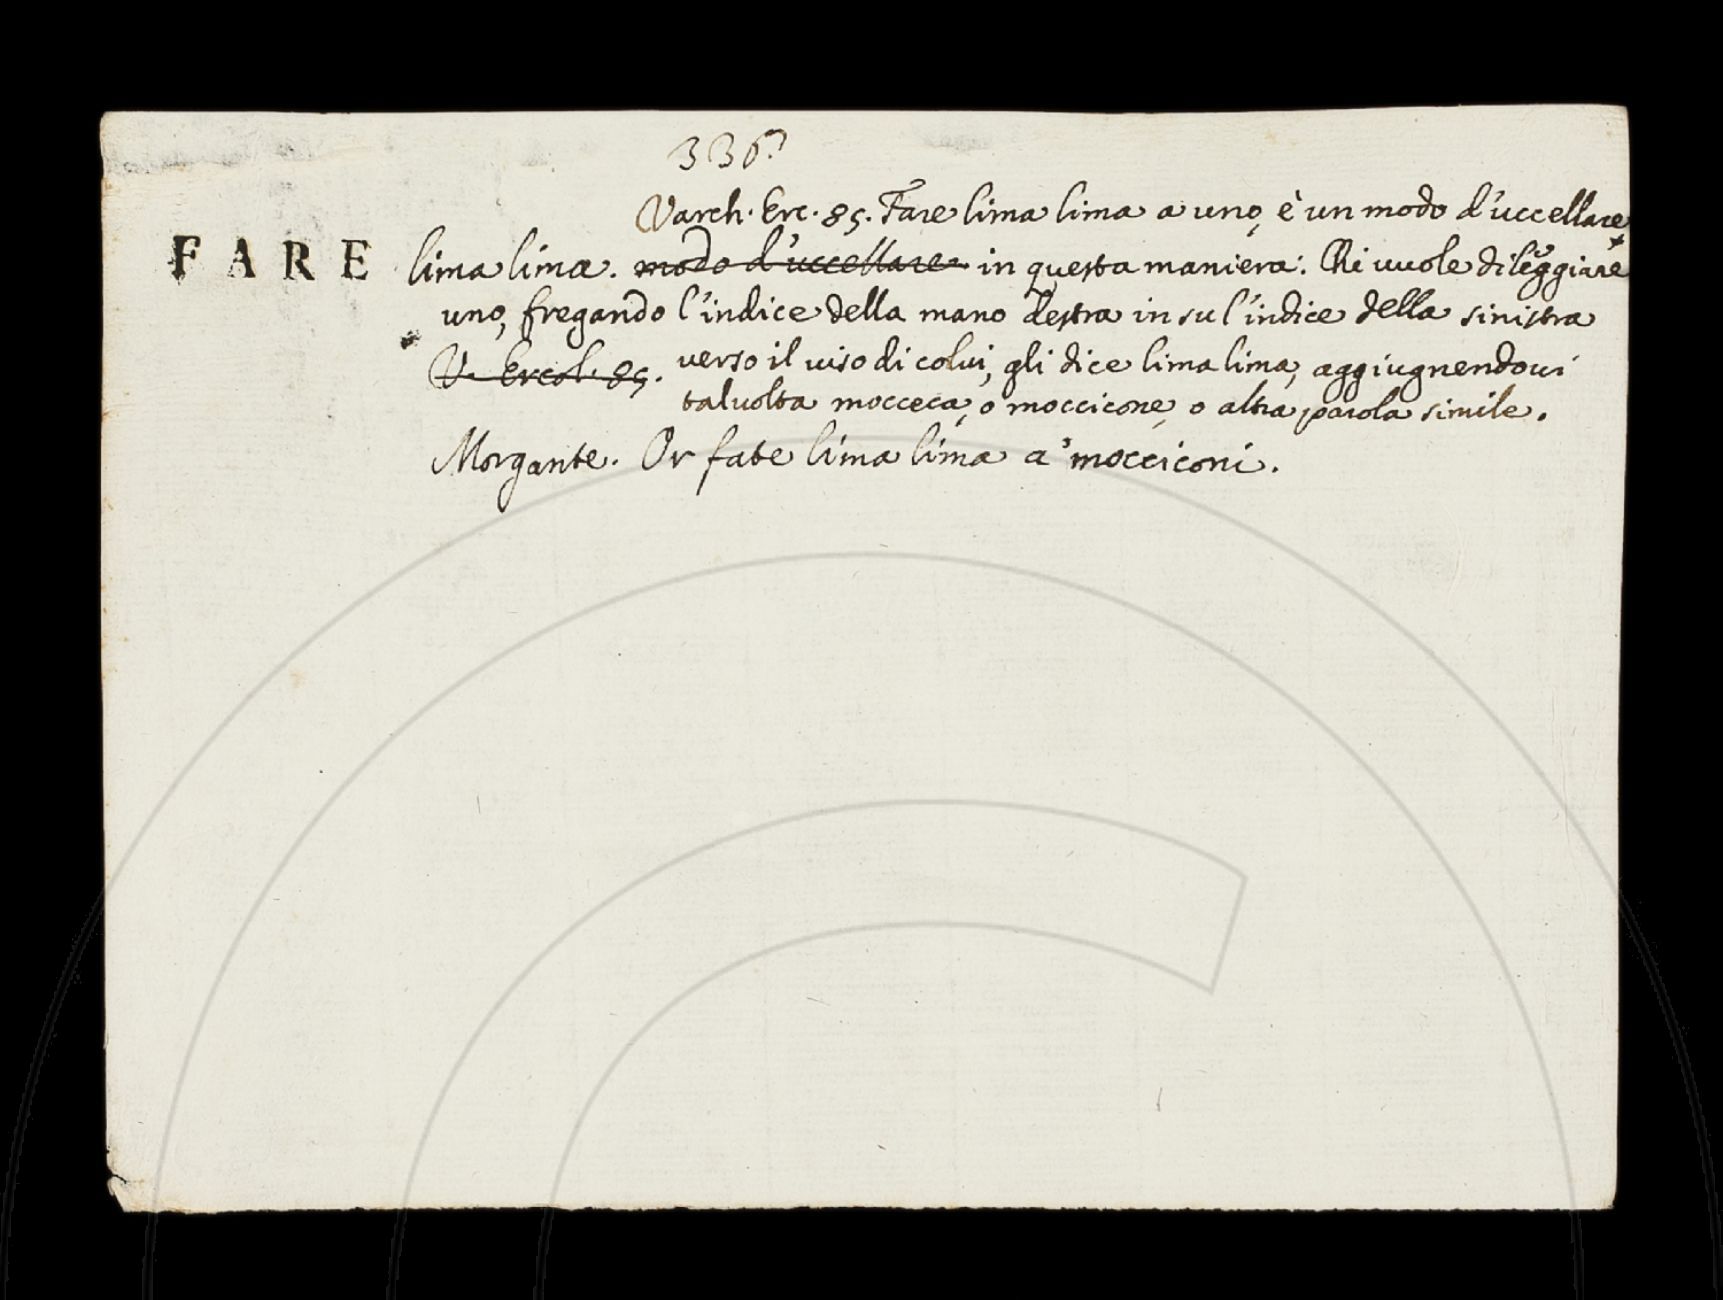 336.
Varch. Erc. 85. Fare lima lima a uno, è un modo d'uccellare
FARE lima lima. modo d'uccellare in questa maniera: Chi vuole dileggiare
uno, fregando l'indice della mano destra in su l'indice della sinistra
V. Ercol. 85. verso il viso di colui, gli dice lima lima, aggiugnendovi
talvolta mocceca, o moccicone, o altra parola simile.
Morgante. Or fate lima lima a' mocciconi.